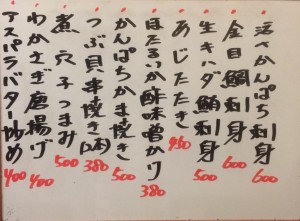 活かんぱち刺身 600
金目鯛刺身 600
生キハダ鮪刺身 500
あじたたき 450
ほたるいか酢味噌かけ 380
かんぱちかま焼き 500
つぶ貝串焼き(2本) 380
煮穴子つまみ 500
わかさぎ唐揚げ 400
アスパラバター炒め 400